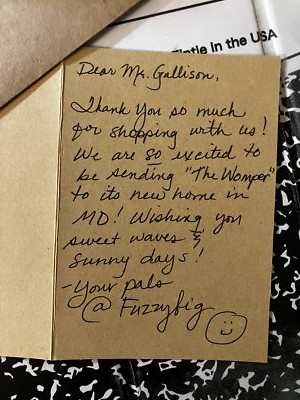 in the USA
Dear Mr. Gallison,
Thank You so much
for shopping with us!
We are so excited to
be sending "The Womper"
to its new home in
MD! Wishing you
sweet waves &
sunny days!
-Your pals
@ Fuzzyfig